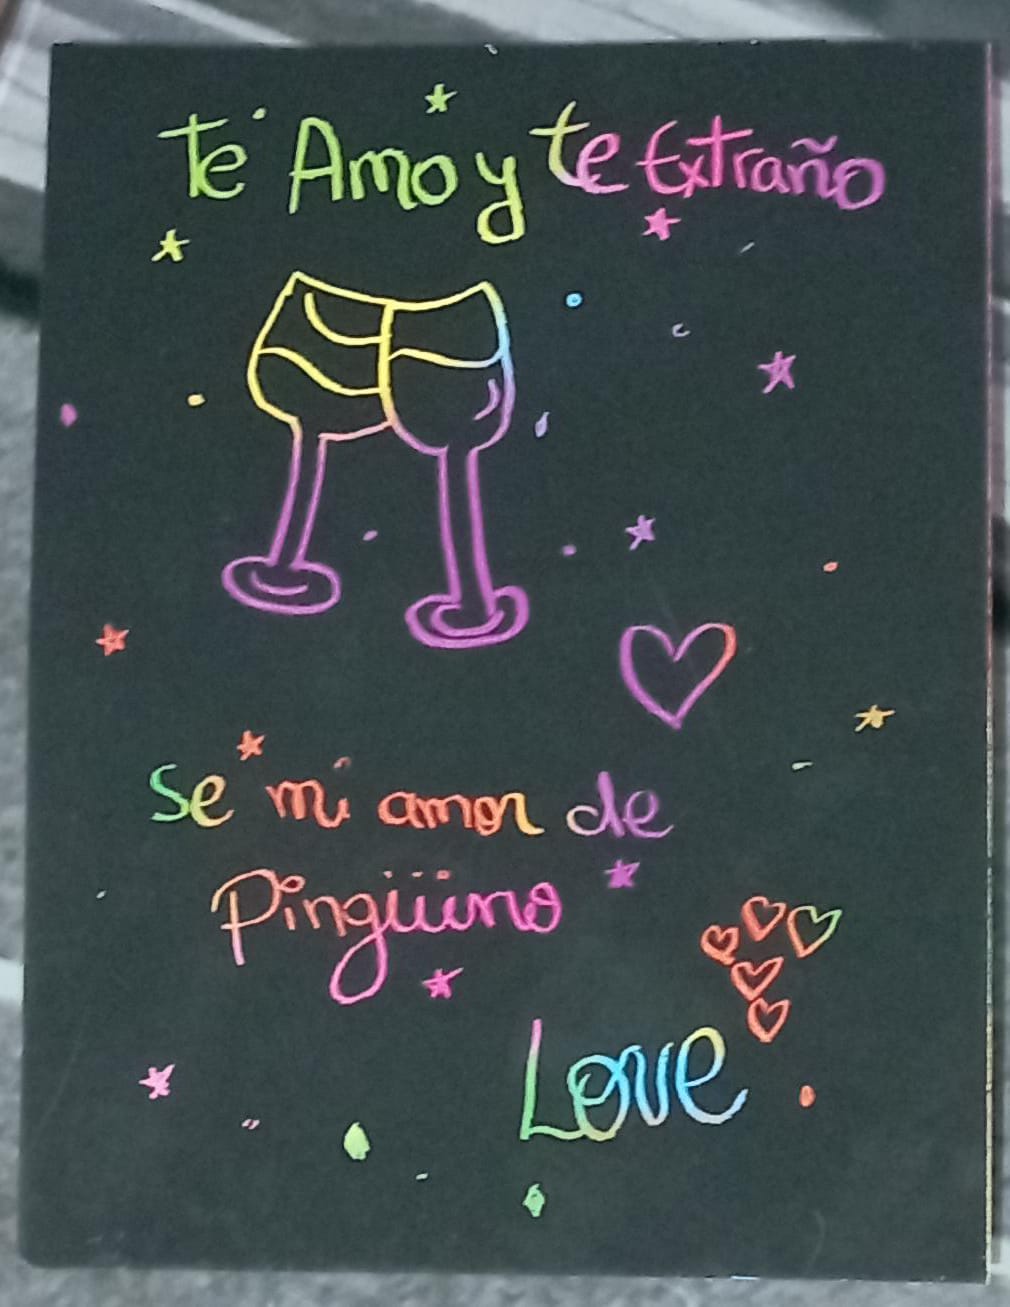 Te Amo y te Extraño
Se mi amor de
Pingüino
Love